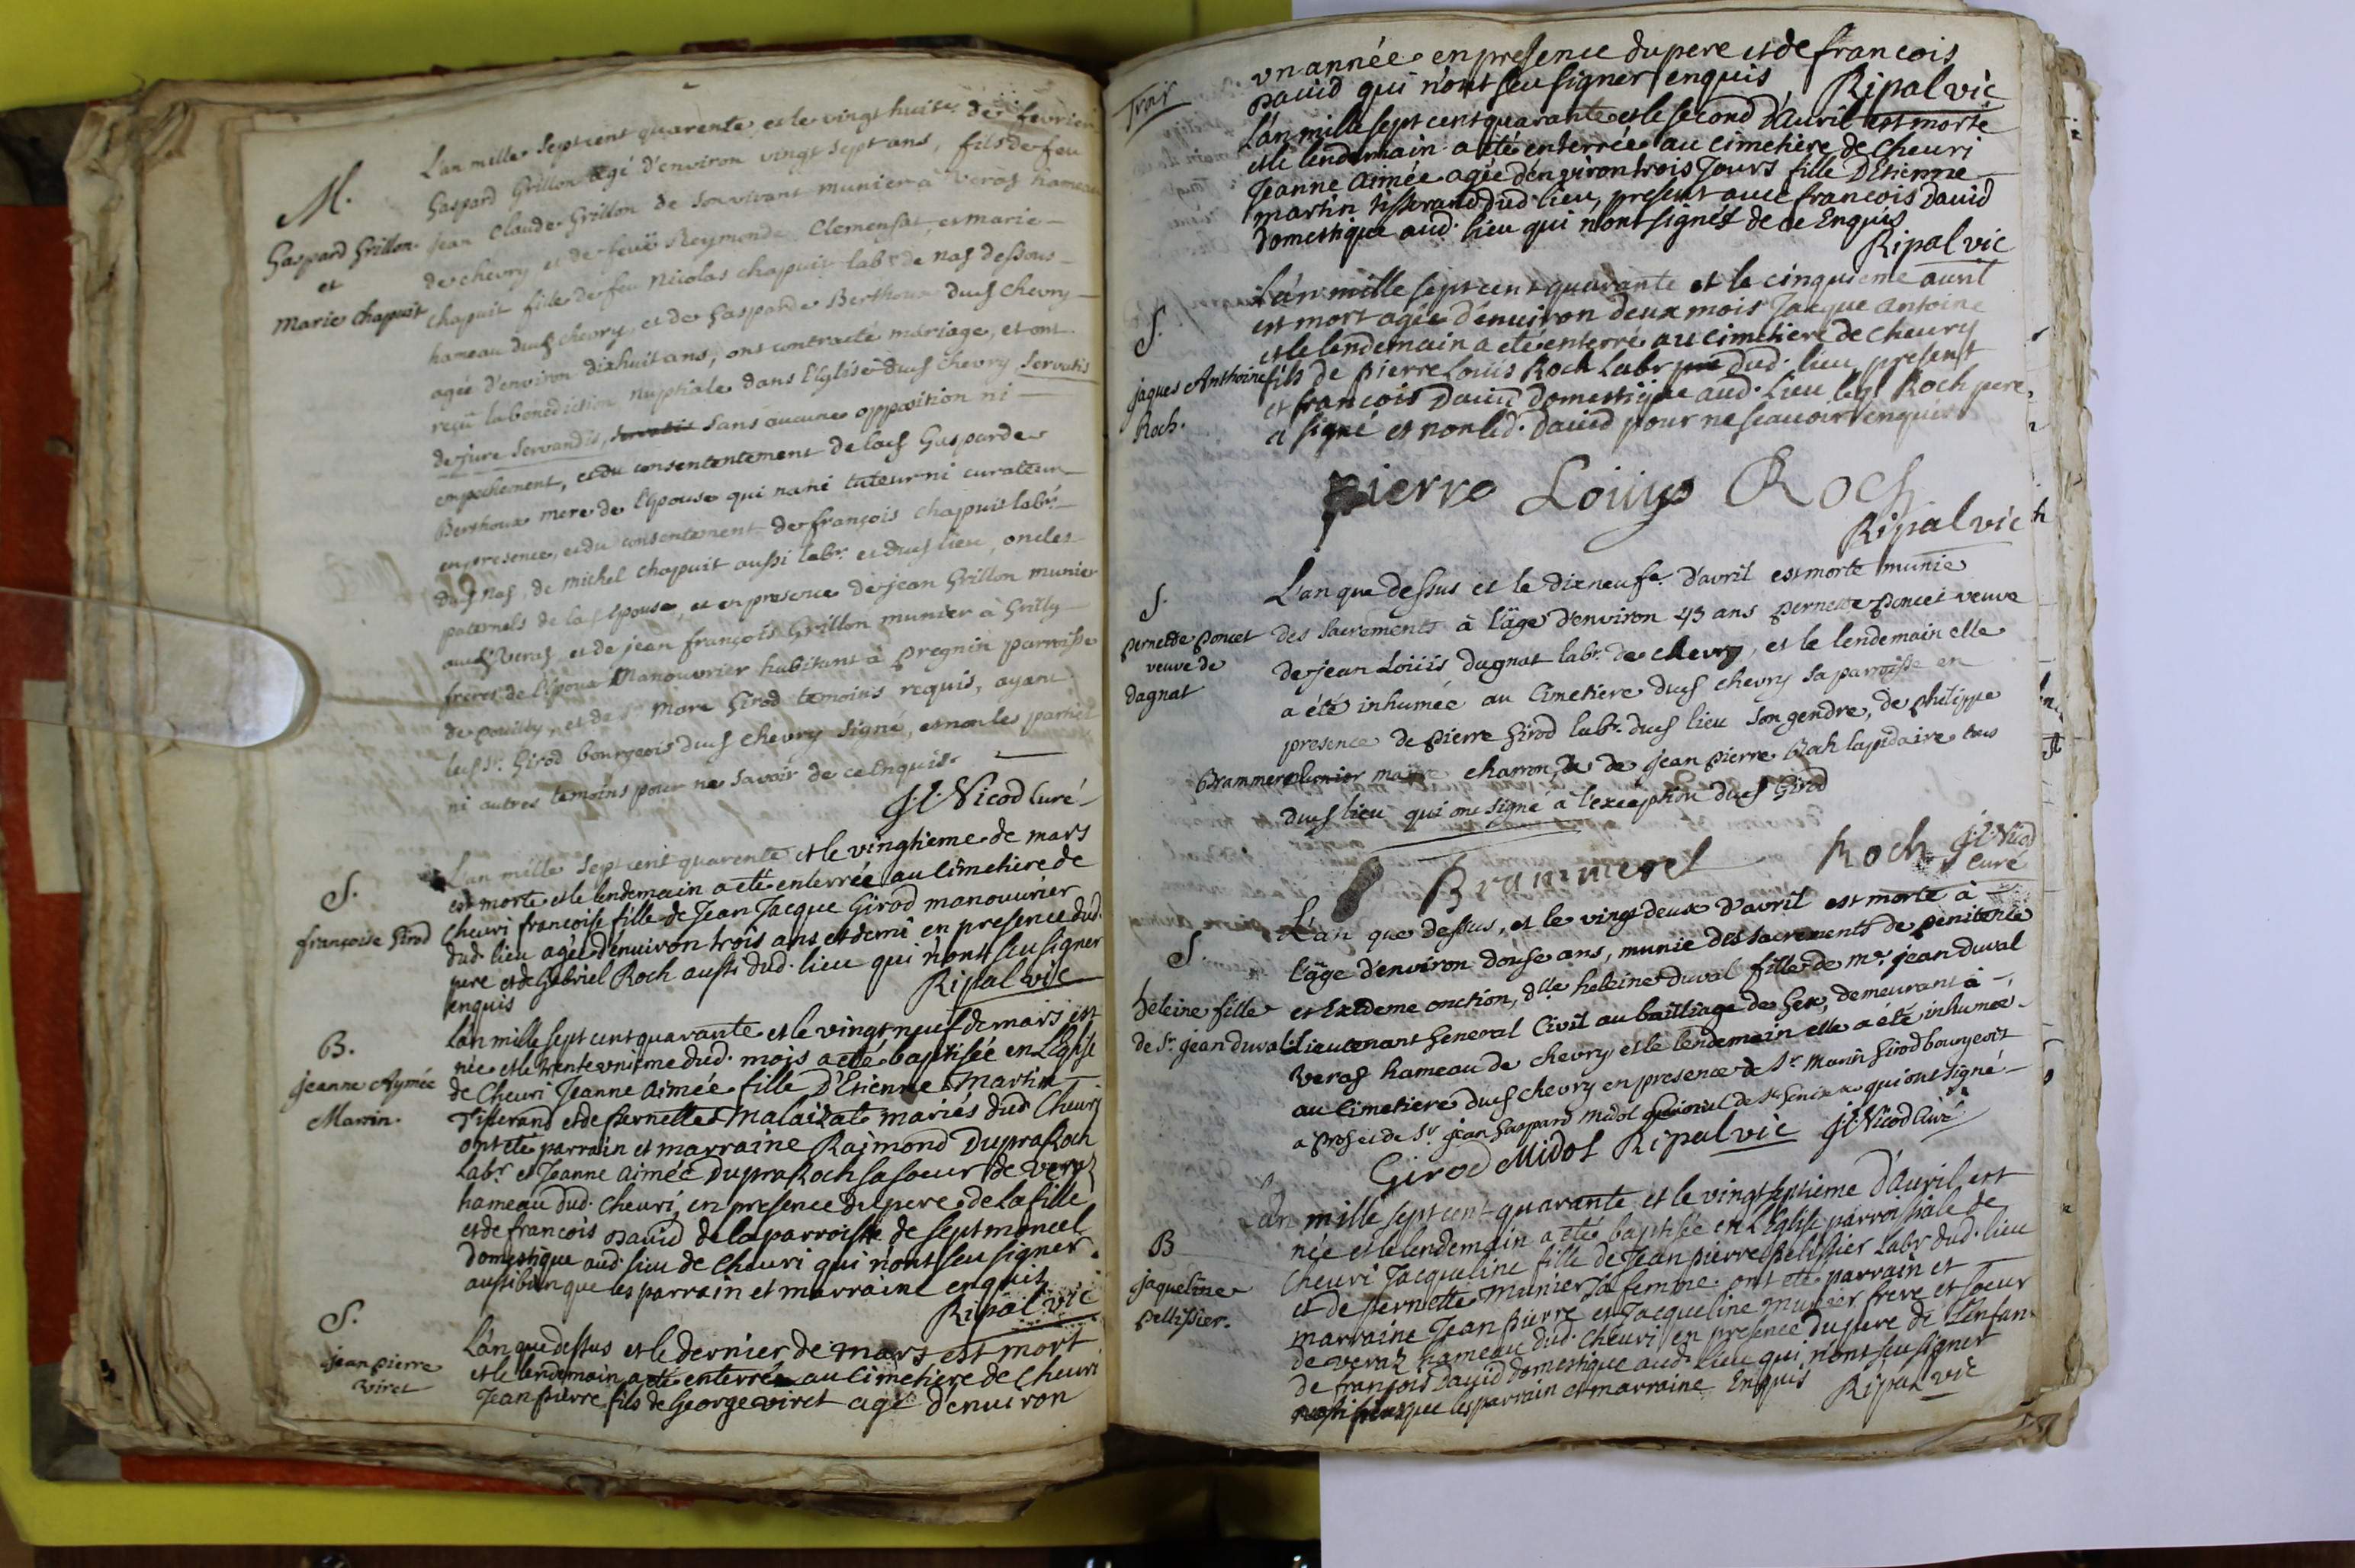 M.
Gaspard Grillon
et
Marie Chapuit
L'an mille sept cent quarente et le vingt huit.e de fevrier
Gaspard Grillon agé d'environ vingt sept ans, fils de feu
jean Claude Grillon de son vivant munier à Veraz hameau
de chevry et de feuë Reymonde Clemensat, et marie
chapuit fille de feu Nicolas chapuit lab.r de naz dessous
hameau dud chevry, et de Gasparde Berthoux dud chevry
agée d'environ dixhuit ans, ont contracté mariage, et ont
reçu la bénédiction nuptiale dans l'Eglise dud chevry servatis
de jure servandis, sans aucune opposition ni
empechement, et du consentement de lad Gasparde
Berthoux mere de l'épouse qui na ni tuteur ni curateur
en presence, et du consentement de françois chapuit lab.r
dud Naz, de michel chapuit aussi lab.r et dud lieu, oncles
paternels de lad Epouse, et en presence de jean Grillon munier
aud Veraz, et de jean françois Grillon munier à Grilly
freres de l'Epoux Manouvrier habitant à Pregnin parroisse
de pouilly, et de s.r Marc Girod temoins requis, ayant
led s.r Girod bourgeois dud chevry signé, et non les parties
ni autres temoins pour ne savoir de ce enquis.
J.C. Nicod Curé
S.
françoise Girod
L'an mille sept cent quarente et le vingtieme de mars
est morte et le lendemain a eté enterrée au Cimetiere de
Cheuri francoise fille de Jean Jacque Girod manouurier
dud. lieu agée d'enuiron trois ans et demi en presence dud.
pere et de Gabriel Roch aussi dud. lieu qui n'ont seu signer
enquis
Ripal vic
B.
jeanne Aymée
Martin.
L'an mille sept cent quarante et le vingt neuf de mars est
née et le trente vnieme dud. mois a eté baptisée en L'Eglise
de Cheuri Jeanne Aimée fille D'Etienne Martin
Tisserand et de Pernette Malaizat mariés dud Cheuri
ont eté parrain et marraine Raimond Dupra Roch
Lab.r et Jeanne Aimée Dupra Roch sa soeur de Veraz
hameau dud. Cheuri, en presence du pere de la fille
et de francois Dauid de la parroisse de septmoncel
Domestique aud. lieu de Cheuri qui n'ont seu signer
aussi bien que les parrain et marraine enquis
Ripal vic
S.
jean pierre
viret
L'an que dessus et le dernier de mars est mort
et le lendemain a eté enterré au Cimetiere de Cheuri
Jean Pierre fils de George viret agé d'enuiron
Trois
vn année en presence du pere et de francois
Dauid qui n'ont seu signer enquis
Ripal vic
L'an mille sept cent quarante et le second d'Auril est morte
et le lendemain a eté enterrée au Cimetiere de Cheuri
Jeanne Aimée agée d'enuiron trois Jours fille D'Etienne
Martin tisserand dud. lieu, present auec francois Dauid
Domestique aud. lieu qui n'ont signés de ce Enquis
Ripal vic
S.
jaques Anthoine
Roch.
L'an mille sept cent quarante et le cinquieme auril
est mort agée d'enuiron deux mois Jacque Antoine
et le lendemain a eté enterré au Cimetiere de Cheury
fils de Pierre Louis Roch Labr dud. lieu, present
et francois Dauid Domestique aud. lieu led Roch pere
a signé et non led. Dauid pour ne scauoir enquis
Pierre Louys Roch
Ripal vic
S.
pernette poncet
veuve de
dagnat
L'an que dessus et le dixneuf.e d'avril est morte munie
des sacrements à l'âge d'environ 45 ans pernette poncet veuve
de jean Loüis dagnat labr. de chevry, et le lendemain elle
a été inhumée au Cimetiere dud chevry sa parroisse en
presence de pierre Girod labr. dud lieu son gendre, de philippe
Brammerel maitre charron, de jean pierre Roch lapidaire tous
dud lieu qui ont signé à l'exception dud Girod
Brammerel Roch J.C. Nicod
Curé
S.
heleine fille
de Sr. jean duval
L'an que dessus, et le vingt deux d'avril est morte à
l'âge d'environ douse ans, munie des sacrements de penitence
et Extreme onction, dlle heleine duval fille de mr. jean duval
Lieutenant General Civil au bailliage de Gex, demeurant à
veraz hameau de chevry, et le lendemain elle a été inhumée
au Cimetiere dud chevry en presence de Sr. Marin Girod bourgeois
et de Sr. jean Gaspard Midol qui ont signé
Girod Midol Ripal vic J.C. Nicod Curé
B
jaqueline
pellissier.
L'an mille sept cent quarante et le vingt septieme d'Auril est
née et le lendemain a eté baptisée en L'Eglise parroissiale de
Cheuri Jacqueline fille de Jean Pierre Pelissier Labr dud. lieu
et de pernette Munier sa femme. ont eté parrain et
marraine Jean Pierre et Jacqueline Munier frere et soeur
de Veraz hameau dud. Cheuri en presence du pere de l'enfan
de francois Dauid domestique aud. lieu qui n'ont seu signer
que les parrain et marraine Enquis
Ripal vic